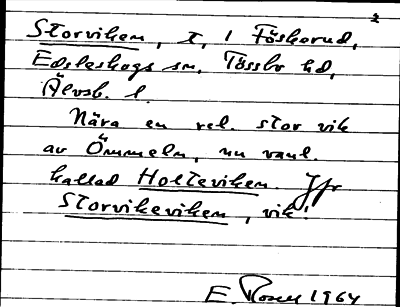 2
Storviken, t, i Föskorud,
Edsleskogs sn, Tössbo hd,
Älvsb. l.
Nära en rel. stor vik
av Ömmeln, nu vanl.
kallad Holteviken. Jfr
Storvikeviken, vik!
E. 1964